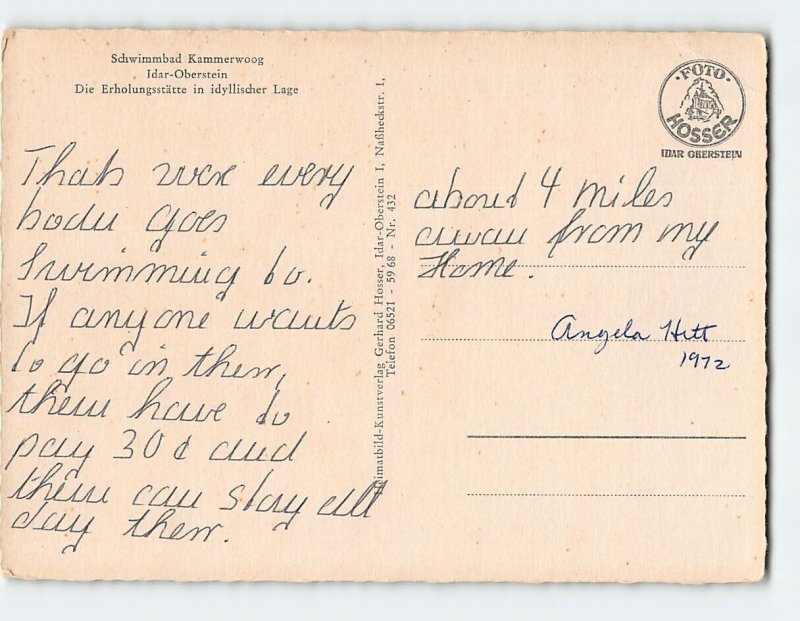 Schwimmbad Kammerwoog
Idar-Oberstein
Die Erholungsstätte in idyllischer Lage
Thats were every
body goes
Swimming to.
If anyone wants
to go in ther,
they have to
pay 30¢ and
they can stay all
day ther.
Heimatbild-Kunstverlag Gerhard Hosser, Idar-Oberstein 1, Naßheckstr. 1,
Telefon 06521 - 59 68 - Nr. 432
·FOTO·
HOSSER
IDAR OBERSTEIN
about 4 miles
away from my
Home.
Angela Hitt
1972